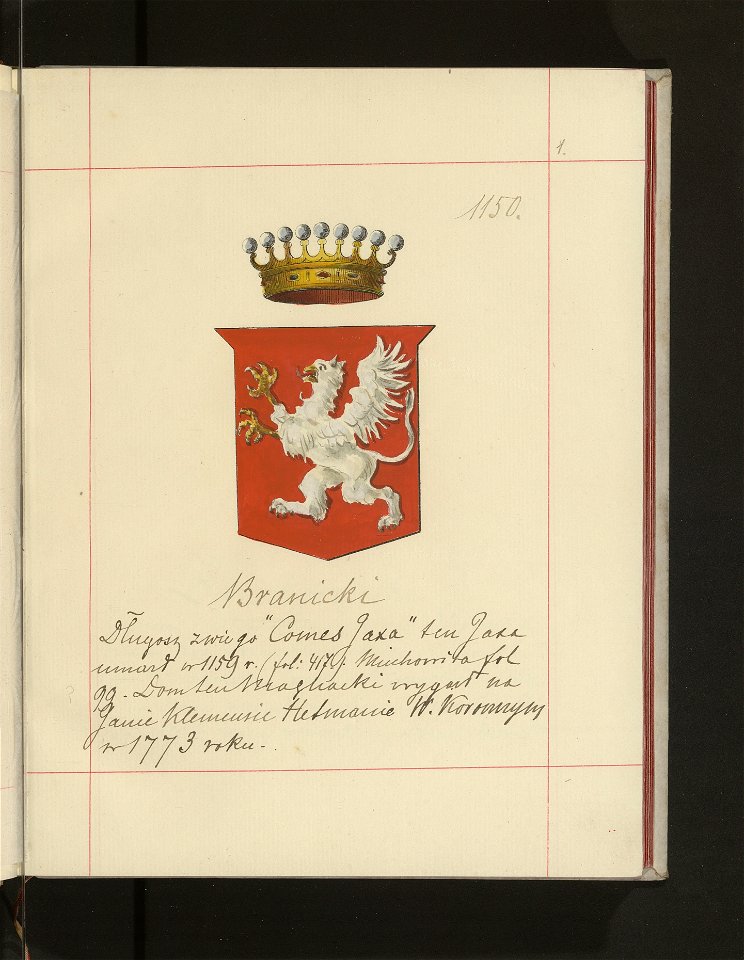 1.
1150.
Branicki
Długosz zwie go "Comes Jaxa" ten Jaxa
umarł w 1159 r. (fol: 417). Miechowita fol
99. Dom ten Magnacki wygasł na
Janie Klemensie Hetmanie W. Koronnym
w 1773 roku.